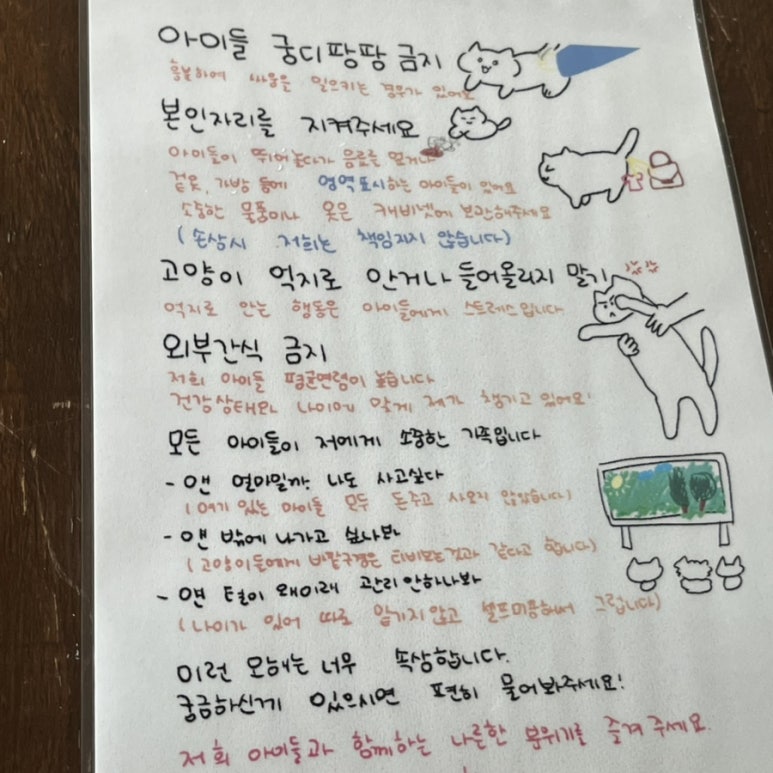 아이들 궁디팡팡 금지
흥분하여 싸움을 일으키는 경우가 있어요
본인자리를 지켜주세요
아이들이 뛰어놀다가 음료를 엎거나
겉옷, 가방 등에 영역표시하는 아이들이 있어요
소중한 물품이나 옷은 캐비넷에 보관해주세요
(손상시 저희는 책임지지 않습니다)
고양이 억지로 안거나 들어올리지 말기
억지로 안는 행동은 아이들에게 스트레스입니다
외부간식 금지
저희 아이들 평균연령이 높습니다
건강상태와 나이에 맞게 제가 챙기고 있어요!
모든 아이들이 저에게 소중한 가족입니다
- 얜 얼마일까? 나도 사고싶다
(여기 있는 아이들 모두 돈주고 사오지 않았습니다)
- 얜 밖에 나가고 싶나봐
(고양이들에게 바깥구경은 티비보는것과 같다고 합니다)
- 얜 털이 왜이래 관리안하나봐
(나이가 있어 따로 맡기지않고 셀프미용해서 그럽니다)
이런 오해는 너무 속상합니다.
궁금하신게 있으시면 편히 물어봐주세요!
저희 아이들과 함께하는 나른한 분위기를 즐겨주세요.